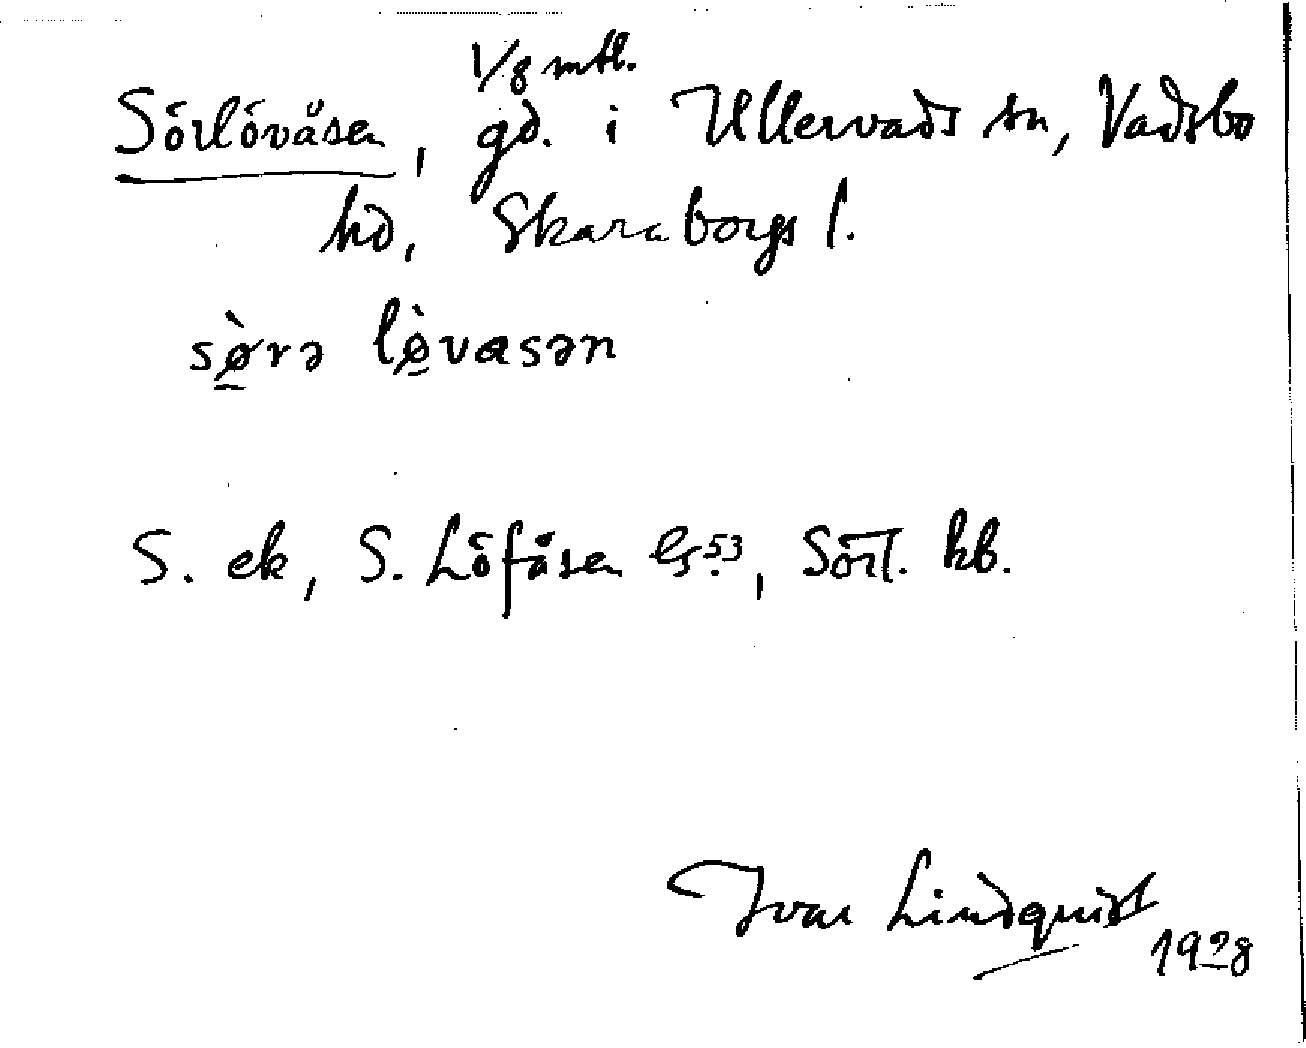 1/8 mtl.
Sörlövåsen, gd. i Ullervads sn, Vadsbo
hd, Skaraborgs l.
sø̀rə lø̀vasən
S. ek, S. Löfåsen Gs 53, Sörl. kb.
Ivar Lindquist
1928